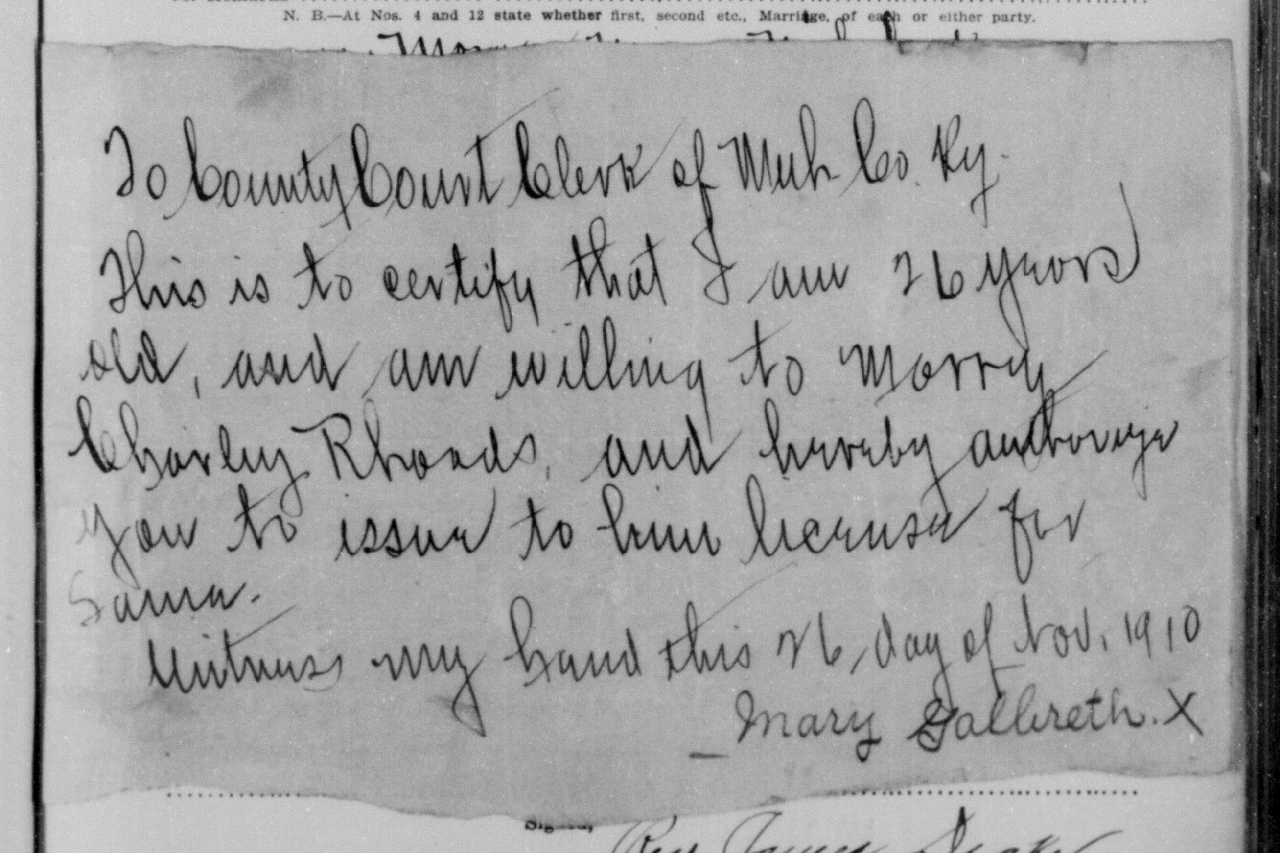 N. B.—At Nos. 4 and 12 state whether first, second etc., Marriage, of each or either party.
To County Court Clerk of Muh Co. Ky.
This is to certify that I am 26 years
old, and am willing to marry
Charley Rhoads, and hereby authorize
you to issue to him license for
same.
Witness my hand this 26, day of Nov. 1910
Mary Galbreth. X
Signed,
Rev James